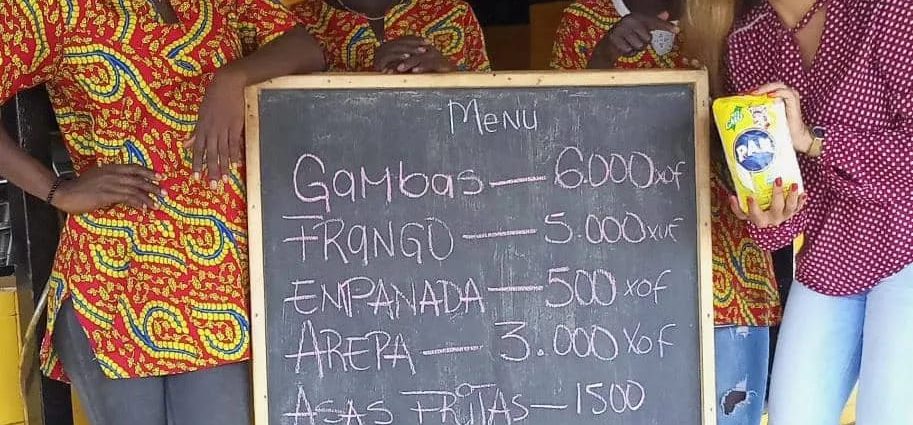 Menu
Gambas — 6.000 xof
FRANGO — 5.000 xof
EMPANADA — 500 xof
AREPA — 3.000 Xof
ASAS FRITAS — 1500
PAN